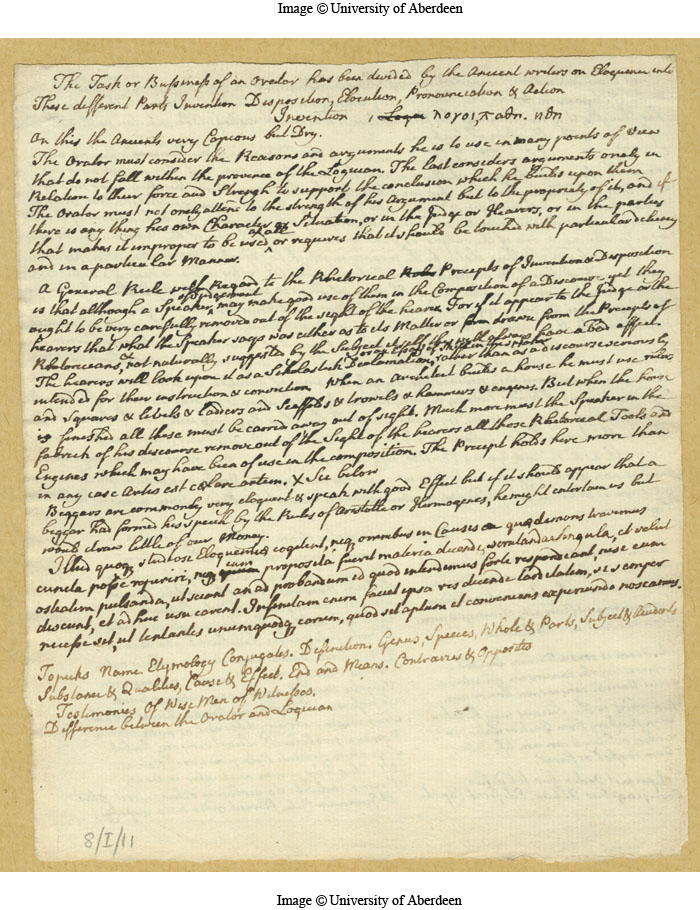 Image © University of Aberdeen
The Task or Bussiness of an Orator has been divided by the Ancient writers on Eloquence into
These different Parts Invention Disposition, Elocution, Pronounciation & Action
Invention
On this the Ancients very Copious but Dry.
The Orator must consider the Reasons and arguments he is to use in many points of view
that do not fall within the province of the Logician. The last considers arguments onely in
Relation to their force and Strength to support the conclusion which he builds upon them
The Orator must not onely attend to the strength of his Argument but to the propriety of it, and if
there is any thing in his own Character or Situation, or in the Judge or Hearers, or in the parties
that makes it improper to be used or requires that it should be touched with particular delicacy
and in a particular Manner.
A General Rule with Regard to the Rhetorical Precepts of Invention & Disposition
is that although a Speaker of Judgement may make good use of them in the Composition of a Discourse yet they
ought to be very carefully removed out of the sight of the hearer. For if it appear to the Judge or the
hearers that what the Speaker says was either as to its Matter or form drawn from the Precepts of
Rhetoriceans, & not naturally suggested by the Subject itself this will always have a bad effect.
The hearers will look upon it as a Scholastick Declamation, rather than as a discourse seriously
intended for their instruction & conviction. When an Architect builds a house he must use rules
and Squares & levels & Ladders and Scaffolds & trowels & hammers & engines. But when the house
is finished all these must be carried away out of sight. Much more must the Speaker in the
fabrick of his discourse remove out of the Sight of the hearers all those Rhetorical Tools and
Engines which may have been of use in the composition. The Precept holds here more than
in any case Artis est celare artem. X See below
Beggars are commonly very eloquent & speak with good Effect but if it should appear that a
beggar had formed his speech by the Rules of Aristotle or Hermogenes, he might entertain us but
would draw little of our Money.
Illud quoq studiose Eloquentiæ cogitent, neq omnibus in Causis quæ demonstravimus
cuncta posse reperiri, neq cum proposita fuerit materia dicendi, scrutanda singula, et velut
ostiatim pulsanda, ut sciant an ad probandum id quod intendimus forte respondeant, nisi cum
discunt, et adhuc usu carent. Infinitam enim faciet ipsa res dicendi tarditatem, si semper
necesse sit, ut tentantes unumquodq eorum, quod sit aptum et conveniens experiundo noscamus.
Topicks Name Etymology Conjugates. Definition. Genus, Species, Whole & Parts, Subject & Accidents
Substance & Qualities, Cause & Effect, End and Means. Contraries & Opposites
Testimonies Of Wise Men of Witnesses.
Difference between the Orator and Logician
8/I/11
Image © University of Aberdeen